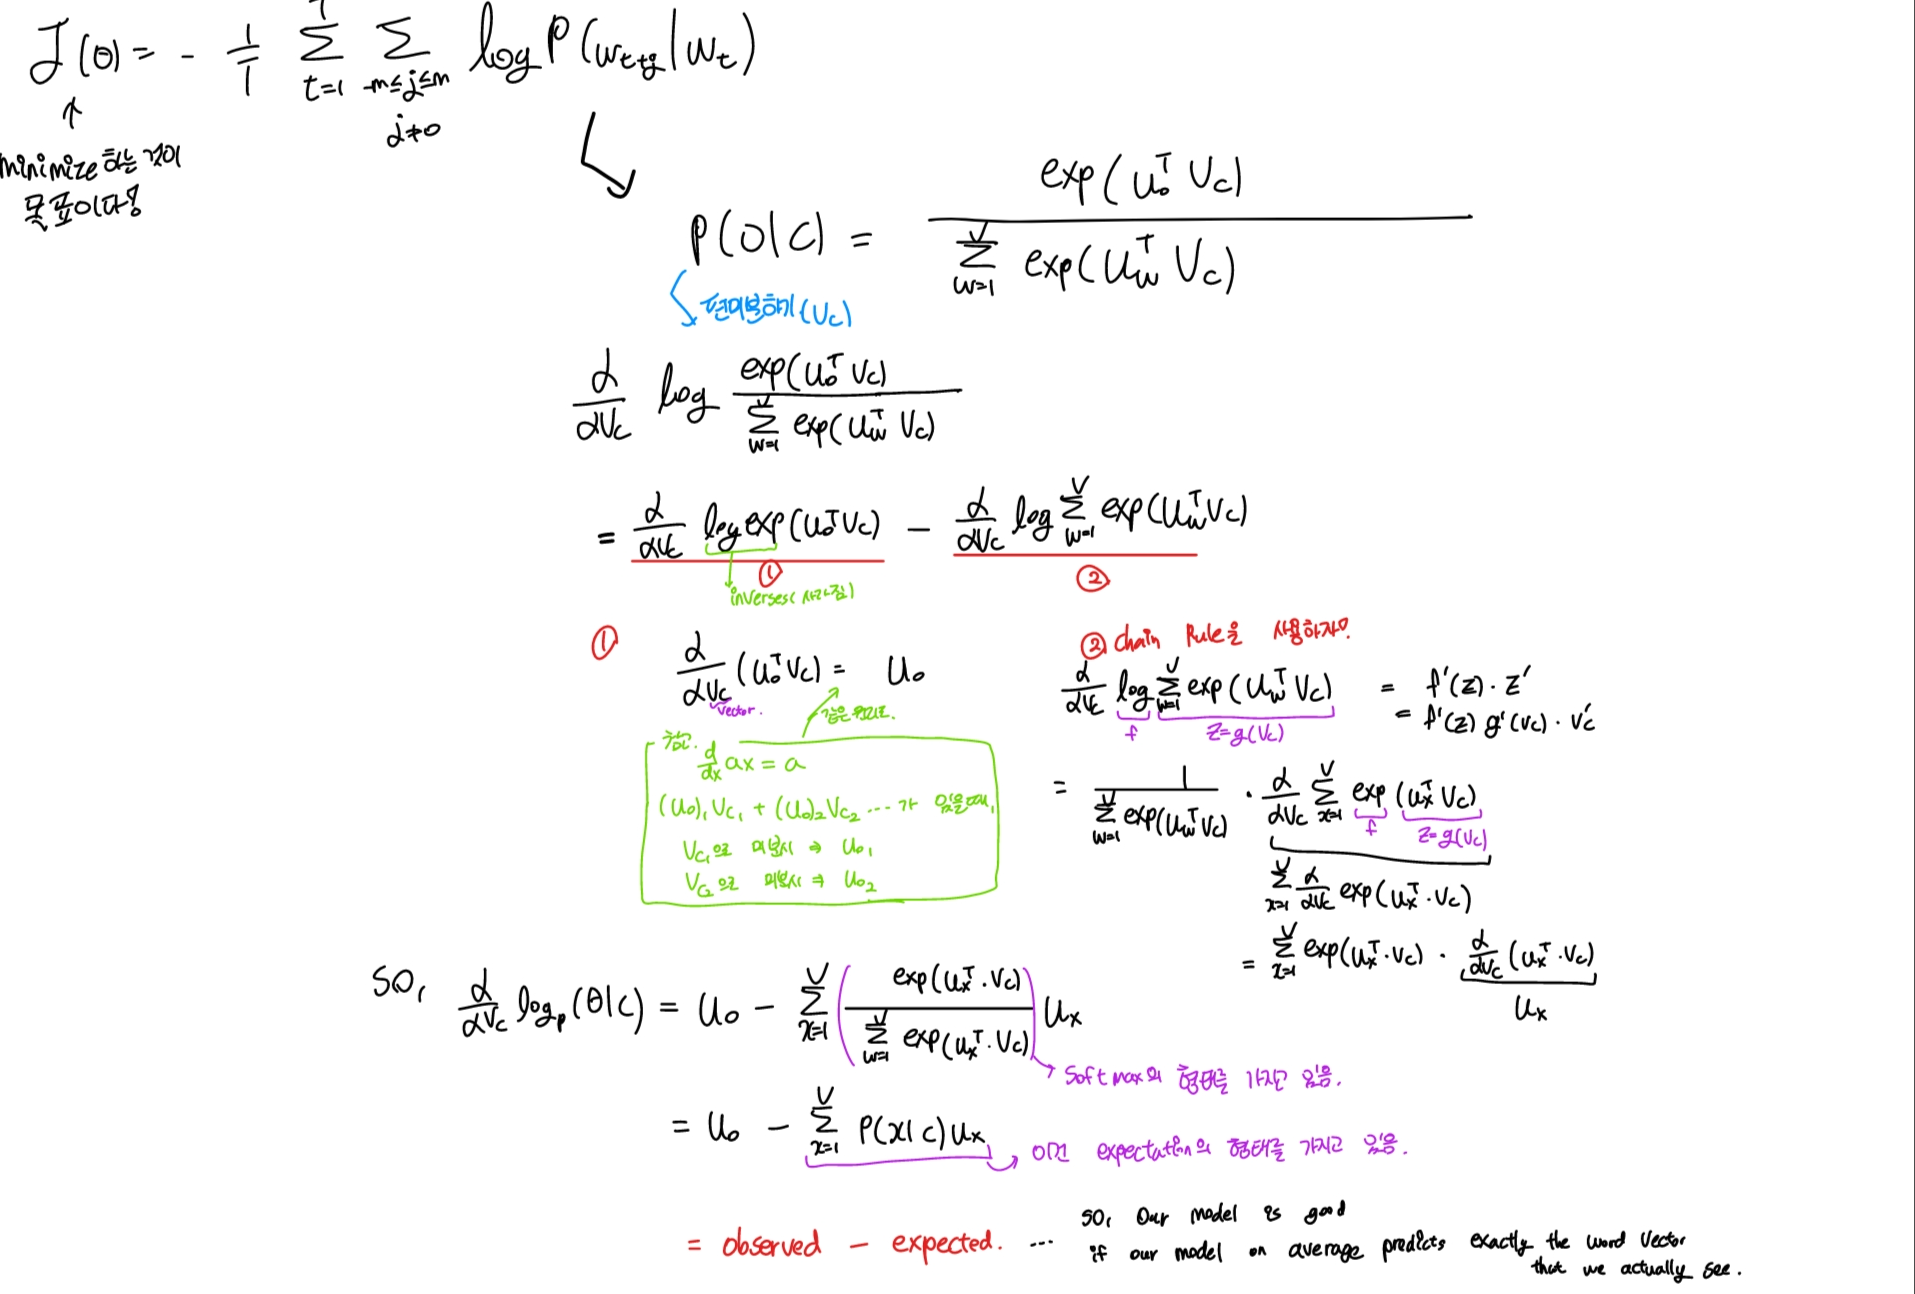 J(θ) = - 1/T Σ_{t=1}^{T} Σ_{-m≤j≤m, j≠0} log P(w_{t+j} | w_t)
↑
minimize 하는 것이
목표이다잉
P(o|c) = exp(u_o^T v_c) / Σ_{w=1}^{V} exp(u_w^T v_c)
편미분하기 (v_c)
∂/∂v_c log exp(u_o^T v_c) / Σ_{w=1}^{V} exp(u_w^T v_c)
= ∂/∂v_c log exp(u_o^T v_c) - ∂/∂v_c log Σ_{w=1}^{V} exp(u_w^T v_c)
① ②
inverses (사라짐)
① ∂/∂v_c (u_o^T v_c) = u_o
vector.
같은 원리로.
참고. d/dx ax = a
(u_o)_1 v_{c1} + (u_o)_2 v_{c2} ... 가 있을때,
v_{c1}으로 미분시 → u_{o1}
v_{c2}으로 미분시 → u_{o2}
② chain Rule을 사용하자!
∂/∂v_c log Σ_{w=1}^{V} exp(u_w^T v_c) = f'(z)·z'
f z=g(v_c) = f'(z) g'(v_c)·v_c'
= 1 / Σ_{w=1}^{V} exp(u_w^T v_c) · ∂/∂v_c Σ_{x=1}^{V} exp(u_x^T v_c)
f z=g(v_c)
Σ_{x=1}^{V} ∂/∂v_c exp(u_x^T·v_c)
= Σ_{x=1}^{V} exp(u_x^T·v_c) · ∂/∂v_c (u_x^T·v_c)
u_x
so, ∂/∂v_c log p(θ|c) = u_o - Σ_{x=1}^{V} ( exp(u_x^T·v_c) / Σ_{w=1}^{V} exp(u_x^T·v_c) ) u_x
softmax의 형태를 가지고 있음.
= u_o - Σ_{x=1}^{V} P(x|c) u_x
이건 expectation의 형태를 가지고 있음.
= observed - expected. ... so, Our model is good
if our model on average predicts exactly the word vector
that we actually see.